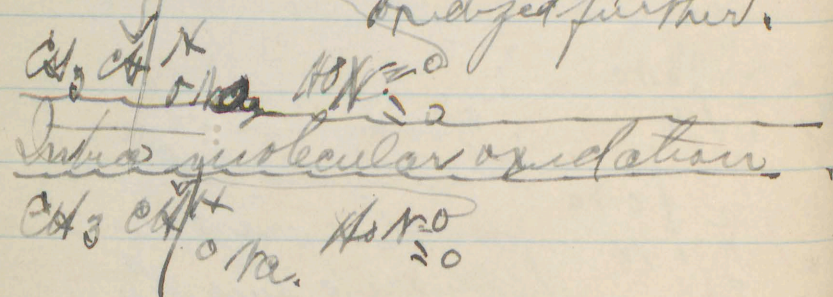 oxidized further.
CH3 CH H
O Na HO N = O
= O
Intra molecular oxidation.
CH3 CH H
O Na. HO N = O
= O